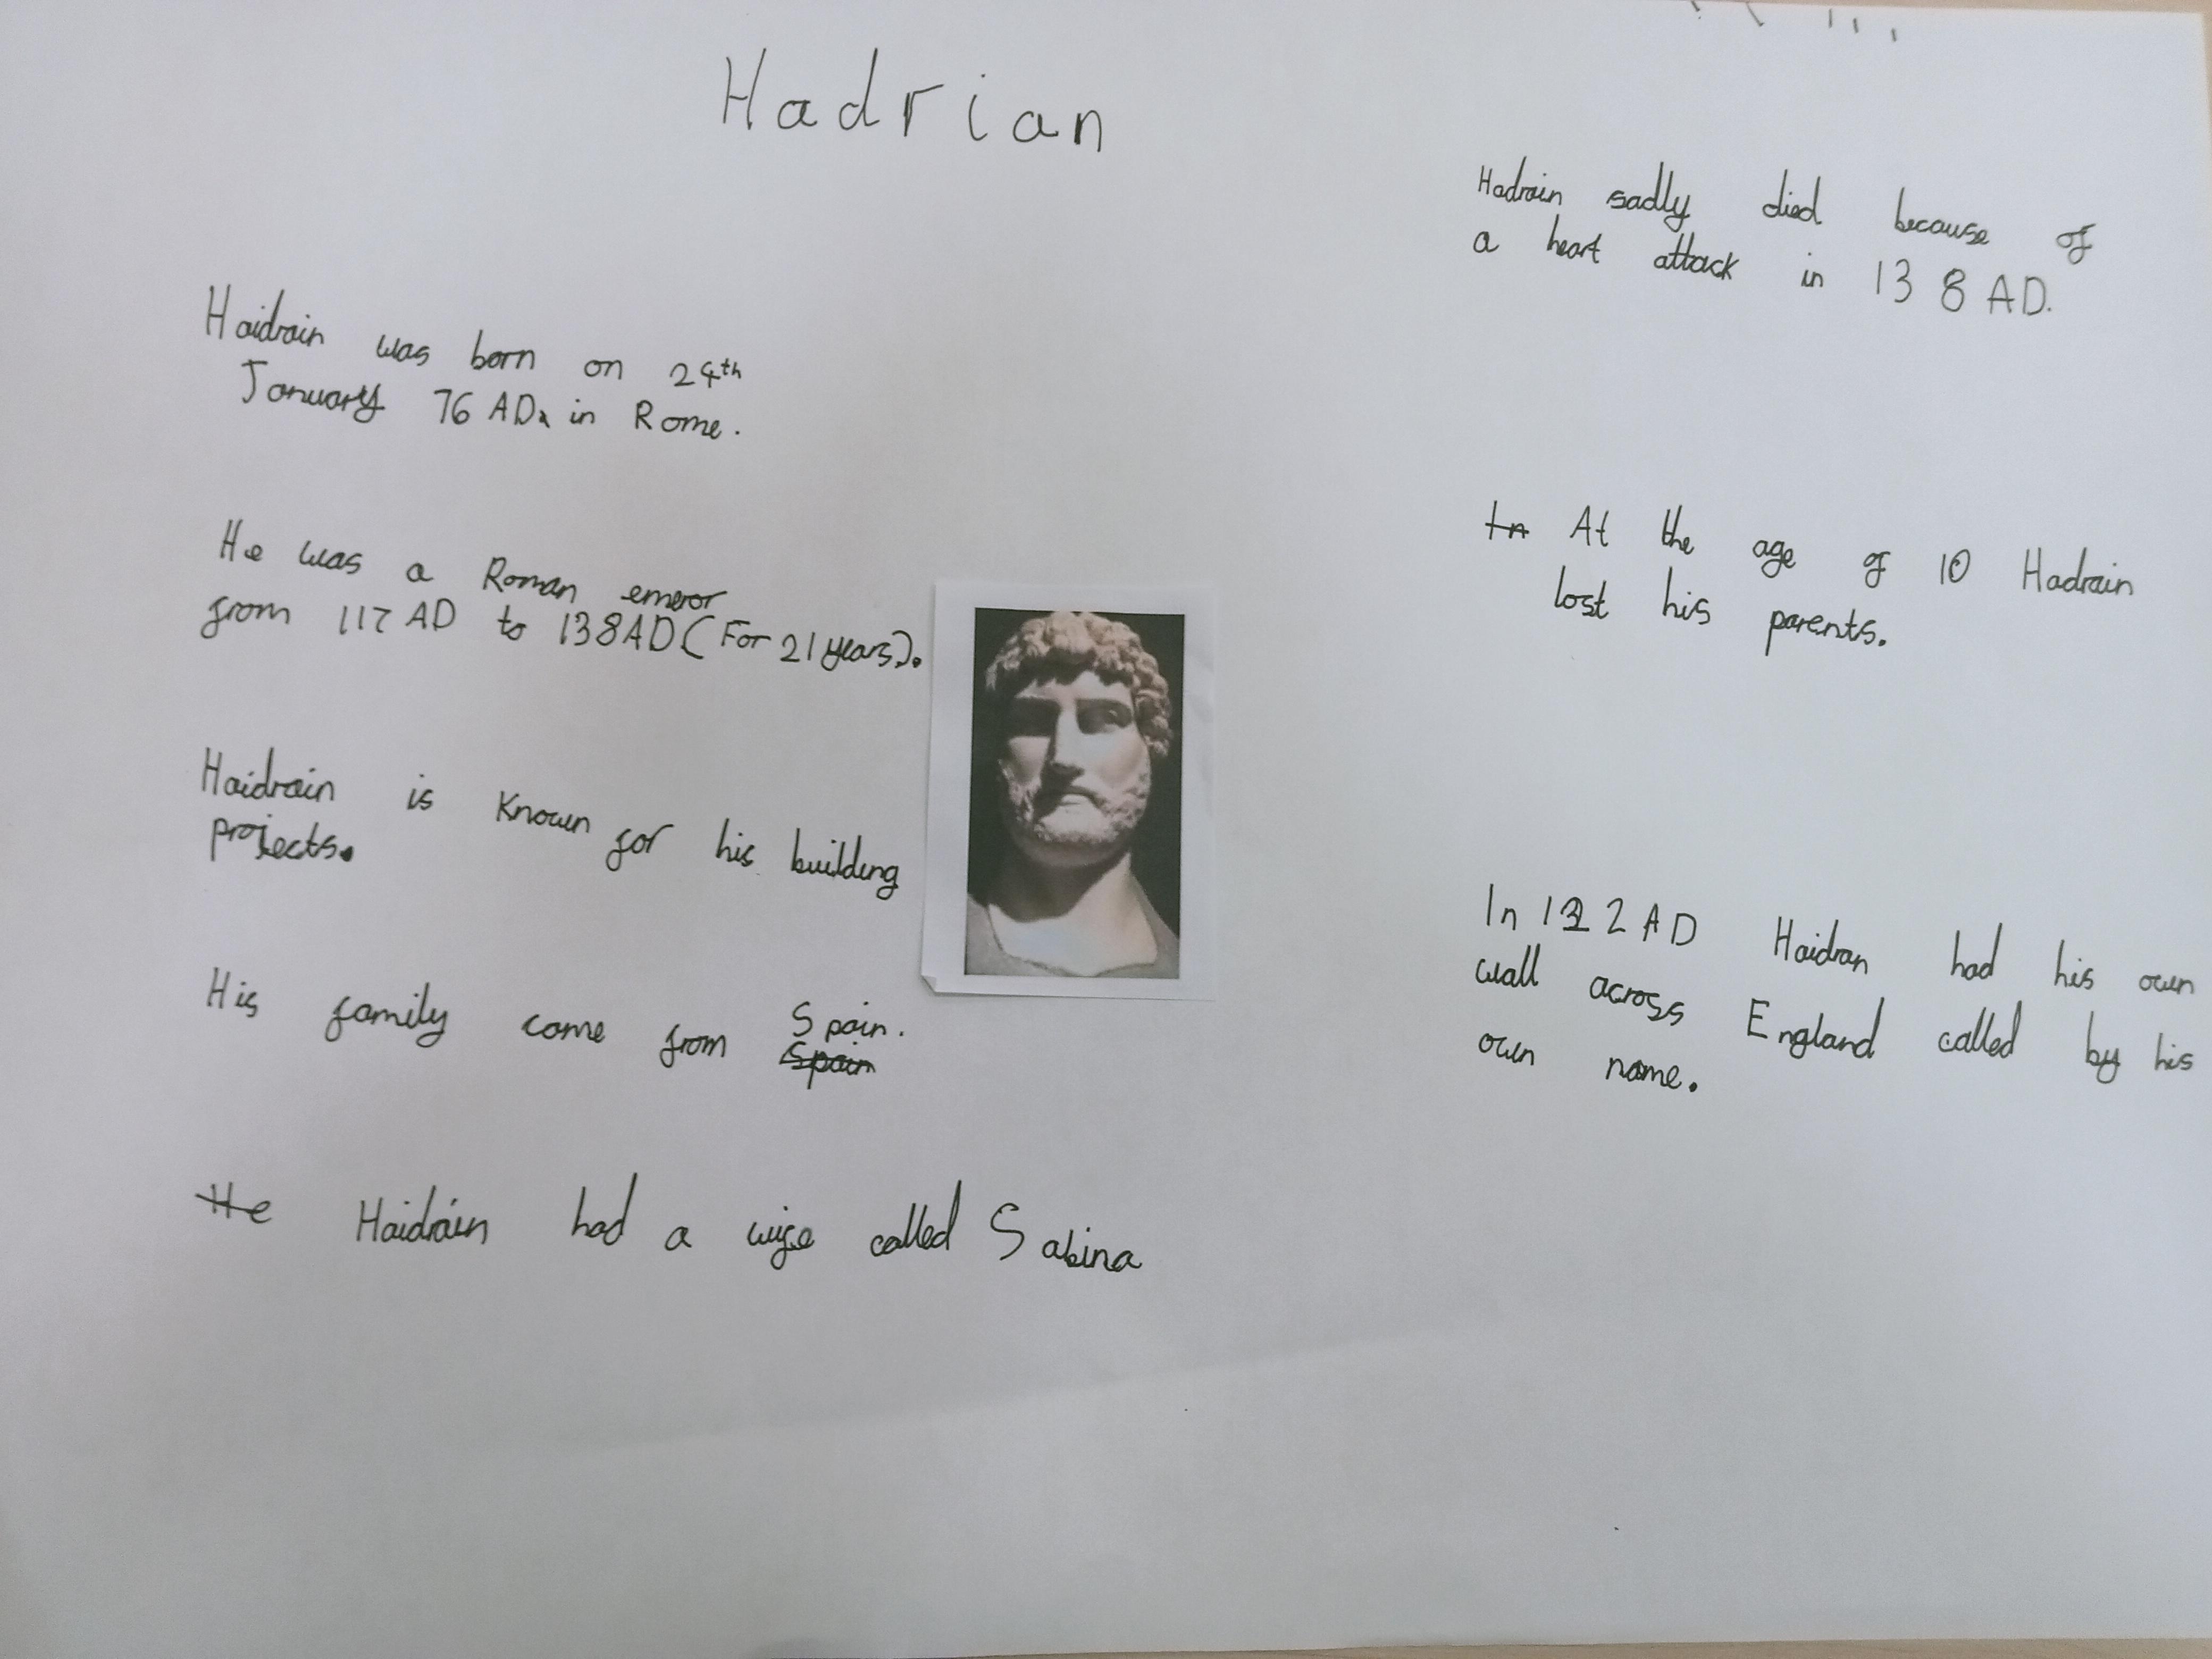 Hadrian
Haidrain was born on 24th
January 76 AD, in Rome.
He was a Roman emeror
from 117 AD to 138AD (For 21 years).
Haidrain is known for his building
projects.
His family come from Spain.
Spain
He Haidrain had a wife called Sabina
Hadrain sadly died because of
a heart attack in 138 AD.
In At the age of 10 Hadrain
lost his parents.
In 122 AD Haidran had his own
wall across England called by his
own name.